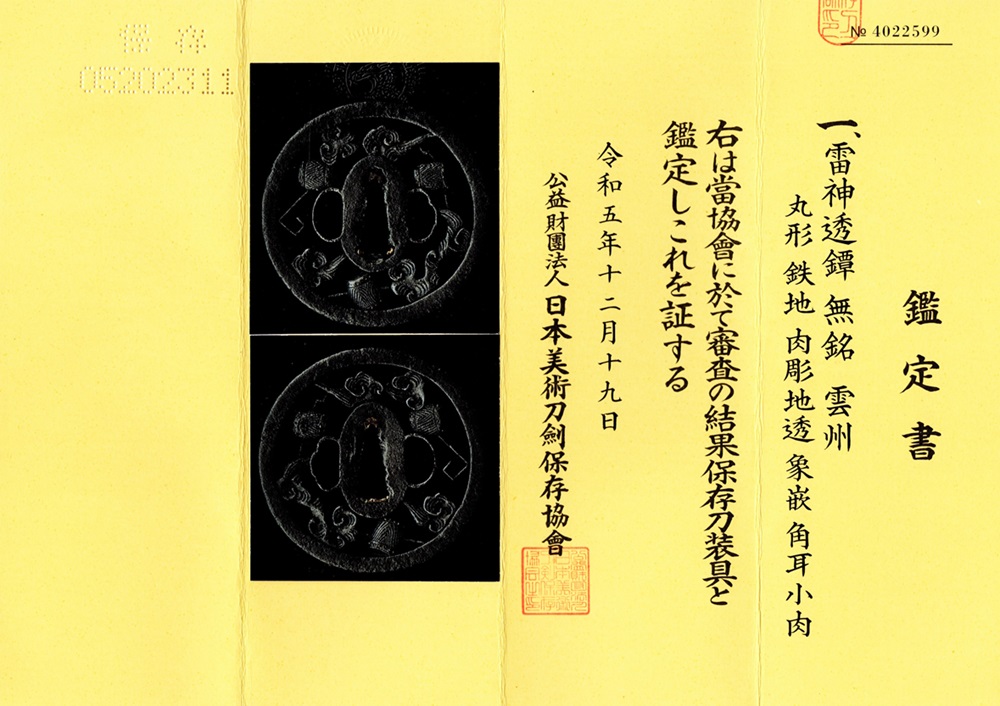 № 4022599
鑑定書
一、雷神透鐔 無銘 雲州
丸形 鉄地 肉彫地透 象嵌 角耳小肉
右は當協會に於て審査の結果保存刀装具と
鑑定しこれを証する
令和五年十二月十九日
公益財團法人 日本美術刀劍保存協會
保存
05202311